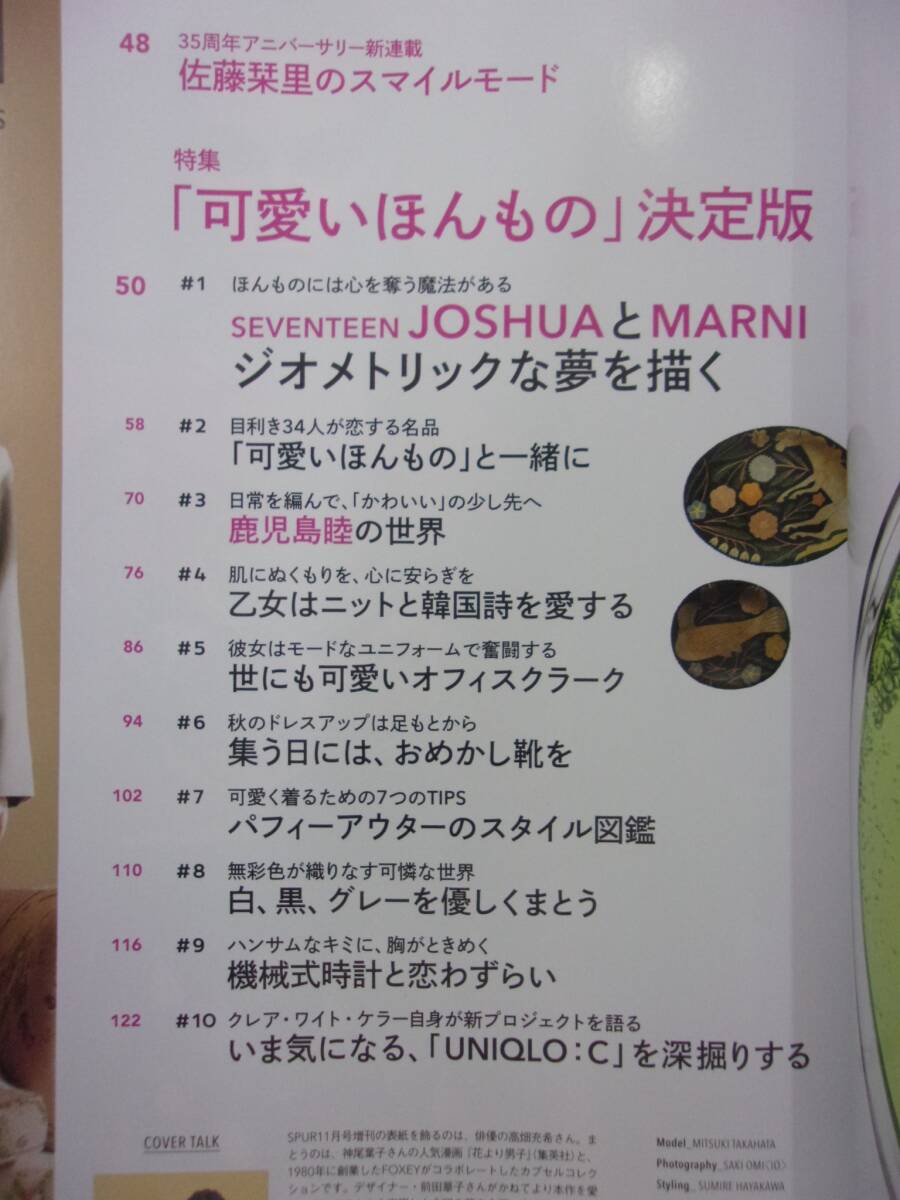 48 35周年アニバーサリー新連載
佐藤栞里のスマイルモード
特集
「可愛いほんもの」決定版
50 #1 ほんものには心を奪う魔法がある
SEVENTEEN JOSHUAとMARNI
ジオメトリックな夢を描く
58 #2 目利き34人が恋する名品
「可愛いほんもの」と一緒に
70 #3 日常を編んで、「かわいい」の少し先へ
鹿児島睦の世界
76 #4 肌にぬくもりを、心に安らぎを
乙女はニットと韓国詩を愛する
86 #5 彼女はモードなユニフォームで奮闘する
世にも可愛いオフィスクラーク
94 #6 秋のドレスアップは足もとから
集う日には、おめかし靴を
102 #7 可愛く着るための7つのTIPS
パフィーアウターのスタイル図鑑
110 #8 無彩色が織りなす可憐な世界
白、黒、グレーを優しくまとう
116 #9 ハンサムなキミに、胸がときめく
機械式時計と恋わずらい
122 #10 クレア・ワイト・ケラー自身が新プロジェクトを語る
いま気になる、「UNIQLO : C」を深掘りする
COVER TALK
SPUR11月号増刊の表紙を飾るのは、俳優の高畑充希さん。ま
とうのは、神尾葉子さんの人気漫画『花より男子』（集英社）と、
1980年に創業したFOXEYがコラボレートしたカプセルコレク
ションです。デザイナー・前田華子さんがかねてより本作を愛
Model_MITSUKI TAKAHATA
Photography_SAKI OMI〈IO〉
Styling_SUMIRE HAYAKAWA